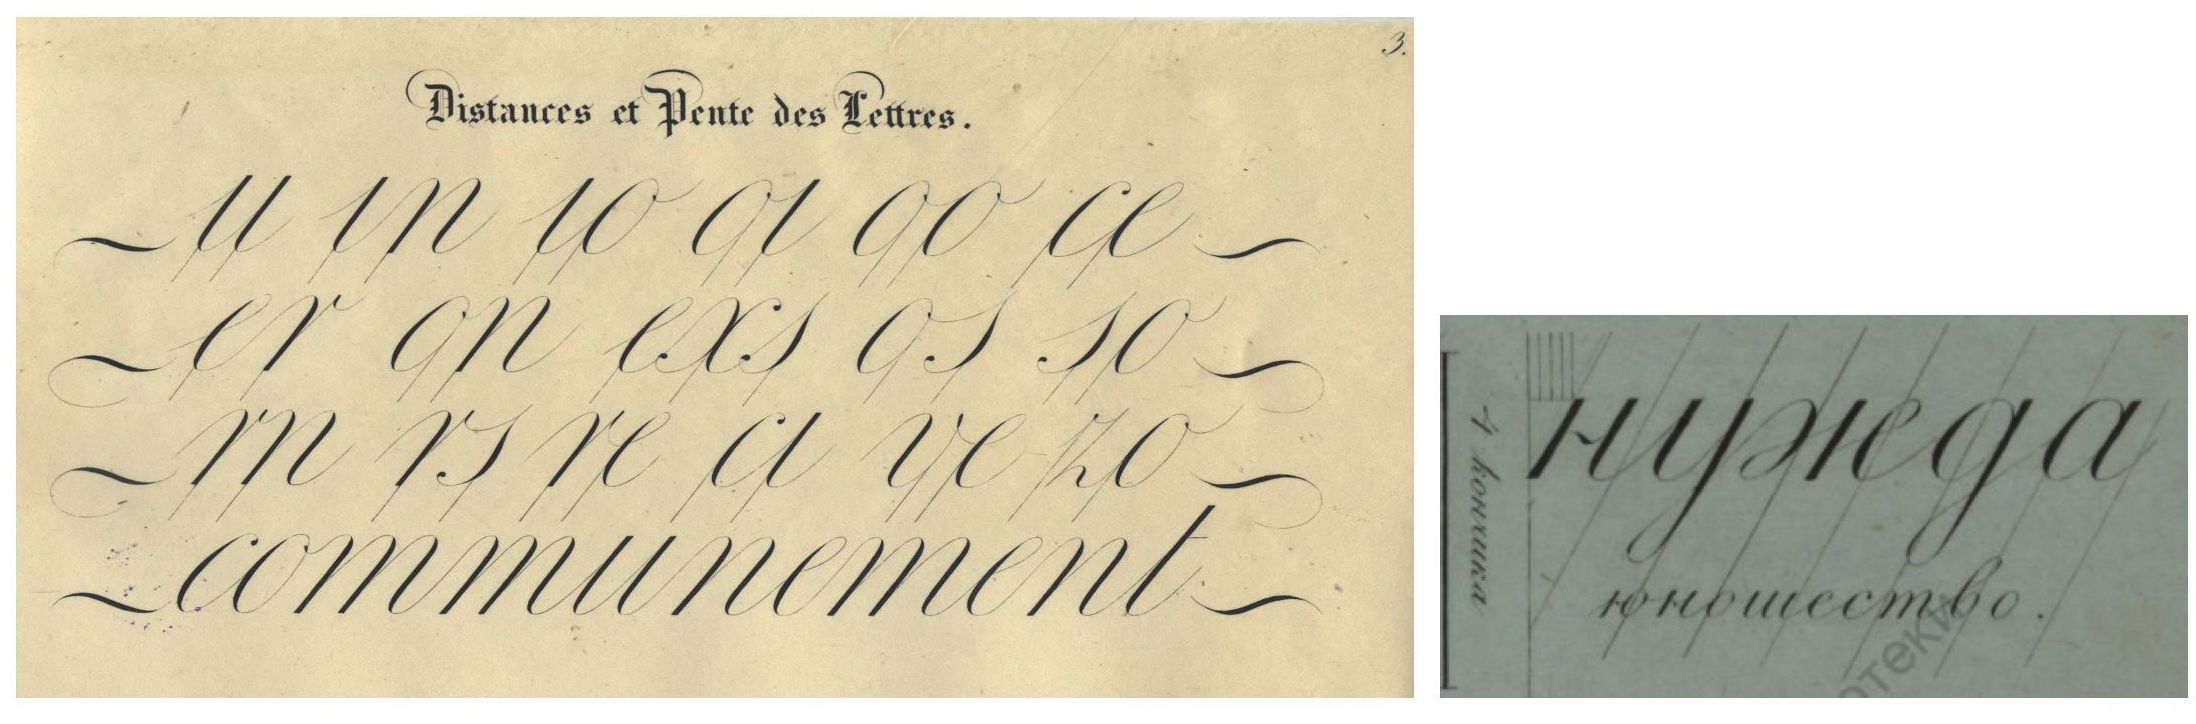 3.
Distances et Pente des Lettres.
u in io ai oo ce
er on exs os so
rn rs re ci ve zo
communement
4 кончика
нужда
юношество.
отеки